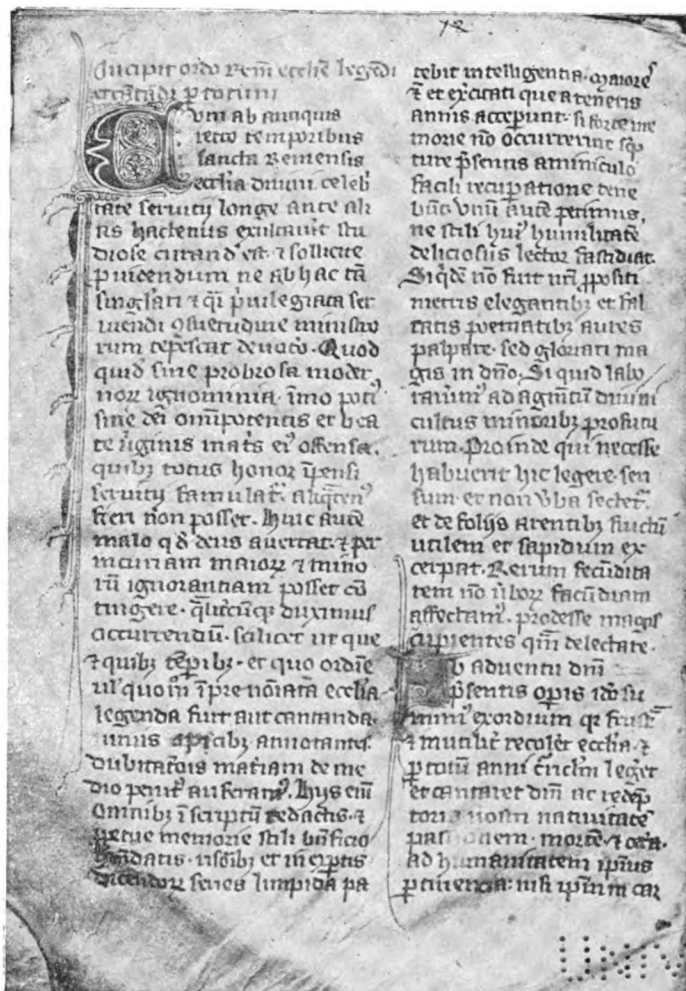 Incipit ordo Rem̄ ecclie legēdi
et cātādi p totum
Cum ab antiquis
retro temporibus
sancta Remensis
ecclia diuini celeb
tate seruitij longe ante ali
as hactenus exultauit stu
diose curand' est · ⁊ sollicite
puidendum ne ab hac tā
singlari ⁊ q̄i p̄uilegiata ser
uiendi ꝯsuetudine ministro
rum tepescat deuotō · Quod
quid' sine probrosa moder
noꝝ ignominia · īmo poti9
sine dei om̄ipotentis et bea
te ūginis mat̄s ei9 offensa ·
quibꝫ totus honor īpensi
seruitij famulat̄ · aliq̄ten9
fieri non posset · Huic autē
malo qd̄ deus auertat · ⁊ per
incuriam maioꝝ ⁊ mino
rū ignorantiam posset cō
tingere · duximus
occurrendū · scilicet ut que
⁊ quibꝫ tēpibꝫ · et quo ordīe
ul' quoḿ ī prenoīata ecclia
legenda sint aut cantanda ·
unis apicibꝫ annotantes
dubitatōis mat̄iam de me
dio penit9 auferam9 · Hijs eiī
omnibꝫ ī scriptū redactis · ⁊
ppetue memorie stili bn̄ficio
ꝯmēdatis · rudibꝫ et in exptis
dicendoꝝ series limpida pa
12
tebit intelligentia · maiores
⁊ et exc̄itati que a teneris
annis acceperunt · si forte me
morie nō occurrerint sc̄p
ture p̄sentis aminiculo
facili recupatione tene
būt · Vnū autē petimus,
ne stili hui9 humilitatē
deliciosus lector fastidiat ·
Siq̄dē nō fuit nr̄i ꝓpositi
metris elegantibꝫ et fal
leratis poematibꝫ aures
palpare · sed gloriari ma
gis in dn̄o · Si quid labo
rauim9 ad agm̄tū diuini
cultus minoribꝫ ꝓfutu
rum · Proinde qui necesse
habuerit hic legere · sen
sum et non v̄ba sectet̄ ·
et de folijs arentibꝫ fructū
utilem et sapidum ex
cerpat · Rerum fecūdita
tem nō ūboꝝ facūdiam
affectam9 · prodesse magis
cupientes qm̄ delectare ·
Ab aduentu dn̄i
p̄sentis opis idō su
mim9 exordium qr frust̄
⁊ inutilit̄ recolēt ecclia · ⁊
p totum anni c̄iclm̄ leget
et cantaret dn̄i ac redēp
toris nostri natiuitatē
passionem · mortē · ⁊ cet̄a ·
ad humanitatem ipius
ptinencia: nisi ipm̄ in car